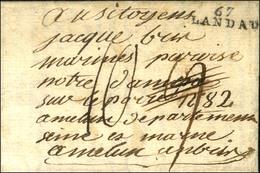 67
LANDAU
Au sitoyens
jacque bris
marines paroise
notre dame
sur le port 82
amelun departement
seine et marne
amelun anbrie